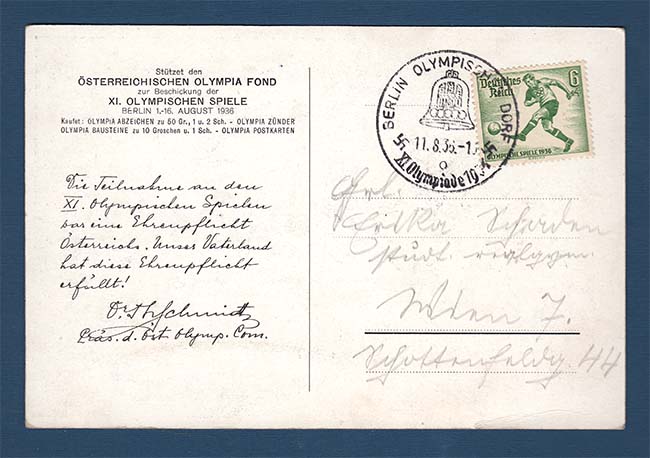 Stützet den
ÖSTERREICHISCHEN OLYMPIA FOND
zur Beschickung der
XI. OLYMPISCHEN SPIELE
BERLIN 1.-16. AUGUST 1936
Kaufet: OLYMPIA ABZEICHEN zu 50 Gr., 1 u. 2 Sch. - OLYMPIA ZÜNDER
OLYMPIA BAUSTEINE zu 10 Groschen u. 1 Sch. - OLYMPIA POSTKARTEN
Die Teilnahme an den
XI. Olympischen Spielen
war eine Ehrenpflicht
Österreichs. Unser Vaterland
hat diese Ehrenpflicht
erfüllt!
Dr. Th Schmidt
Präs. d. Öst. Olymp. Com.
BERLIN OLYMPISCHES DORF
11.8.36.-1
a
XI. Olympiade 19
Deutsches
Reich
6
OLYMPISCHE SPIELE 1936
Frl.
Erika Schaden
stud. realgym.
Wien 7.
Schottenfeldg. 44